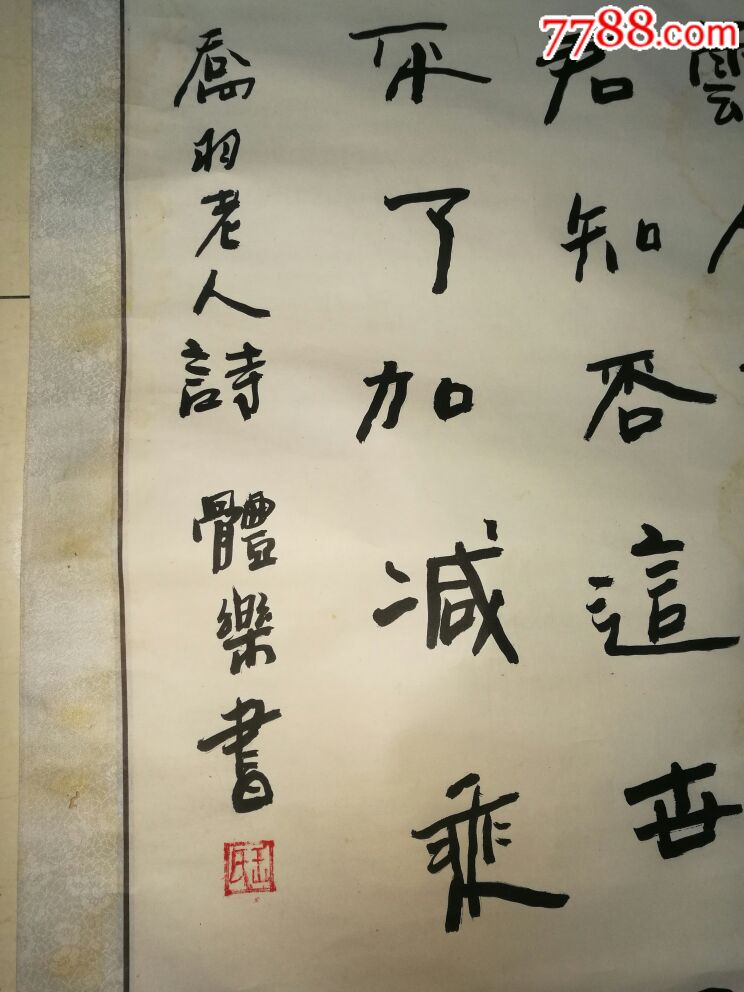 7788.com
雲
君知否這世
不了加減乘
喬羽老人詩 體樂書